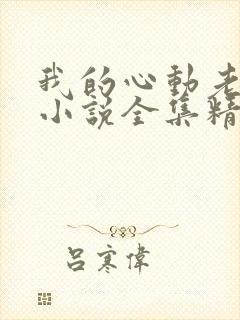 我的心動老
小説全集精
呂寒偉